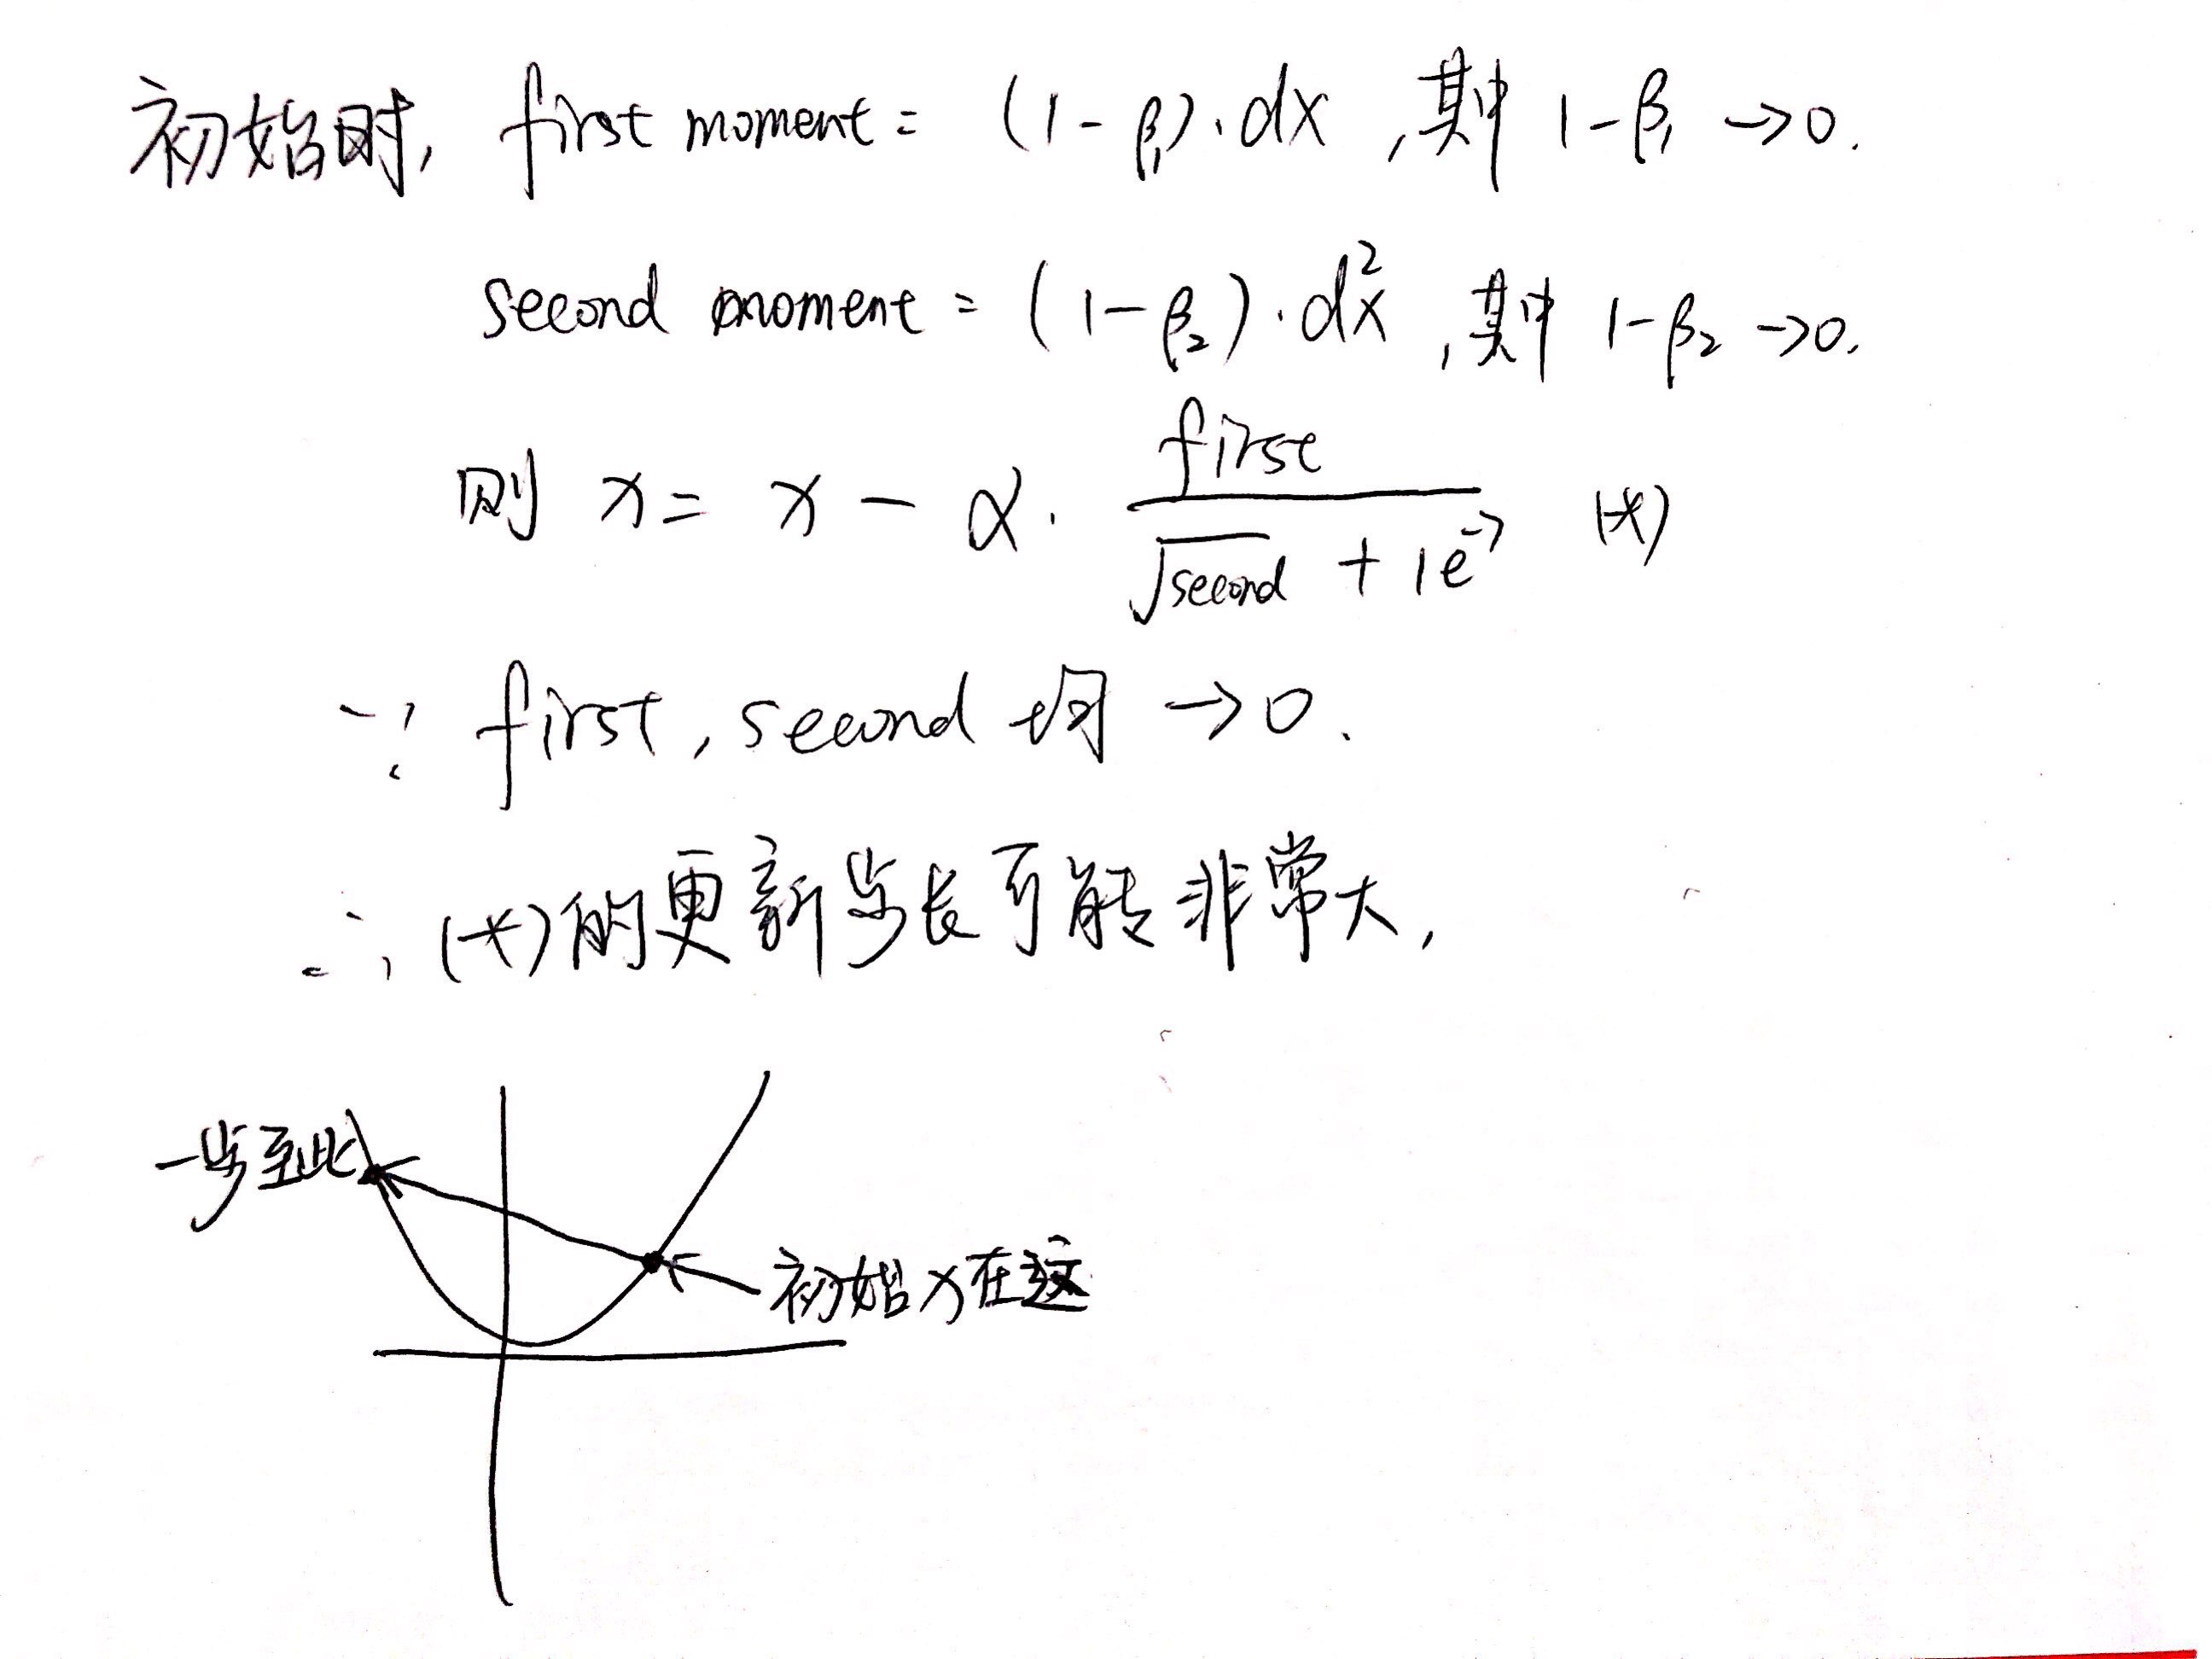 初始时, first moment = (1-β₁)·dx ,其中 1-β₁ →0.
second moment = (1-β₂)·dx² ,其中 1-β₂ →0.
则 x = x - α · first / (√second + 1e⁻⁷) (*)
∵ first, second 均 →0.
∴ (*)的更新步长可能非常大,
一步至此
初始x在这